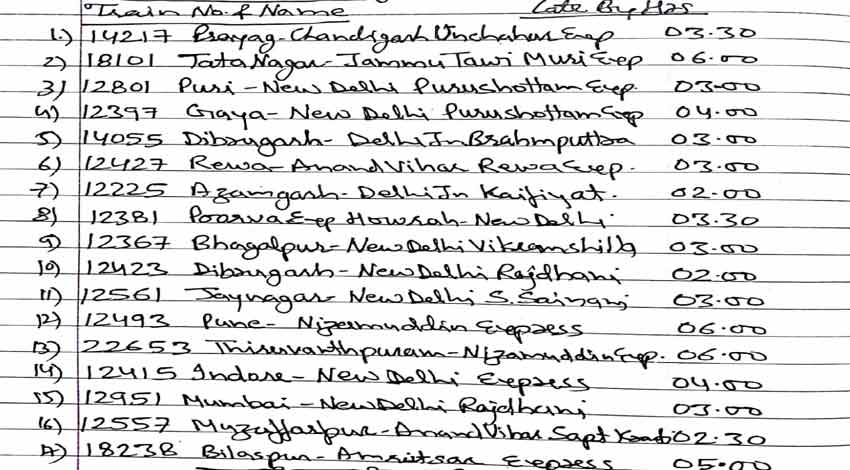 Train No. & Name Late By Hrs
1.) 14217 Prayag-Chandigarh Unchahar Exp 03.30
2) 18101 TataNagar-JammuTawi Muri Exp 06.00
3) 12801 Puri-New Delhi Purushottam Exp. 03-00
4) 12397 Gaya-New Delhi Purushottam Exp 04.00
5) 14055 Dibrugarh-Delhi Jn Brahmputra 03.00
6) 12427 Rewa-Anand Vihar Rewa Exp. 03.00
7) 12225 Azamgarh-Delhi Jn Kaifiyat. 02.00
8) 12381 Poorva Exp Howrah-New Delhi 03.30
9) 12367 Bhagalpur-New Delhi Vikramshila 03.00
10) 12423 Dibrugarh-New Delhi Rajdhani 02.00
11) 12561 Jaynagar-New Delhi S. Sainani 03.00
12) 12493 Pune-Nizamuddin Express 06.00
13) 22653 Thiruvanthpuram-Nizamuddin Exp. 06.00
14) 12415 Indore-New Delhi Express 04.00
15) 12951 Mumbai-New Delhi Rajdhani 03.00
16) 12557 Muzaffarpur-Anand Vihar Sapt Kranti 02.30
17) 18238 Bilaspur-Amritsar Express 05.00